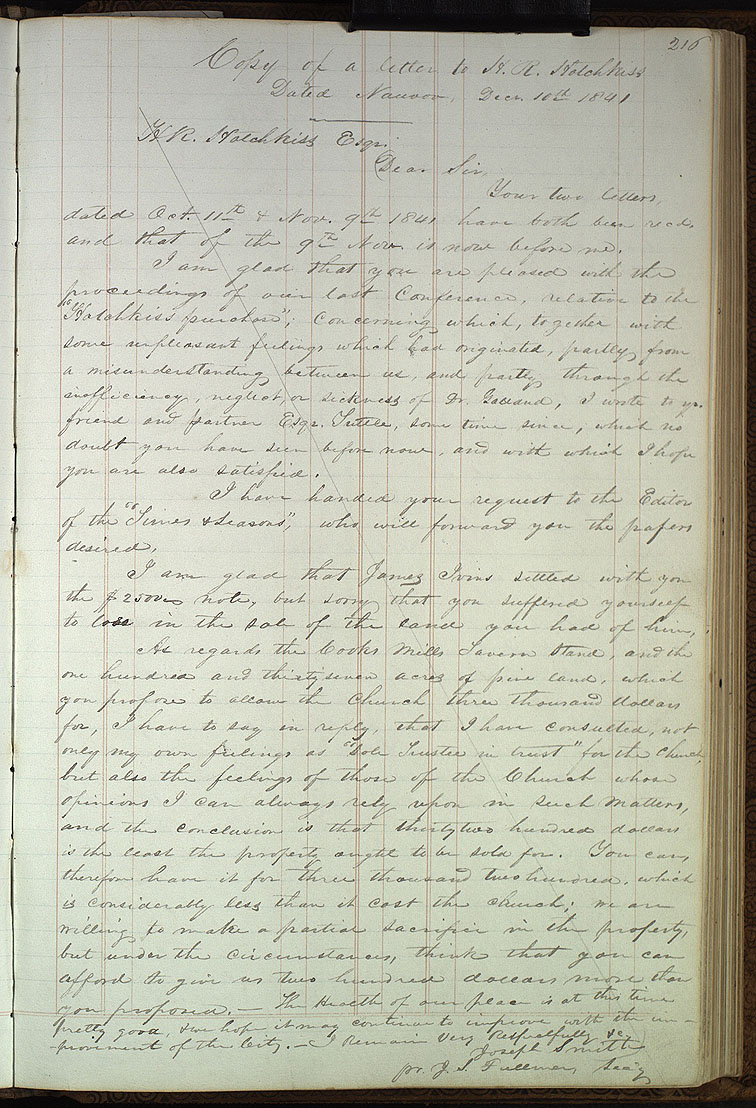 216
Copy of a letter to H. R. Hotchkiss
Dated Nauvoo, Decr. 10th 1841
H R. Hotchkiss Esqr.
Dear Sir,
Your two letters,
dated Oct. 11th & Nov. 9th 1841 have both been recd.
and that of the 9th Nov. is now before me.
I am glad that you are pleased with the
proceedings of our last Conference, relative to the
"Hotchkiss purchase"; concerning which, together with
some unpleasant feelings which had originated, partly from
a misunderstanding between us, and partly through the
inefficiency, neglect, or sickness of Dr. Galland, I wrote to yr.
friend and partner Esqr. Tuttle, some time since, which no
doubt you have seen before now, and with which I hope
you are also satisfied.
I have handed your request to the Editor
of the "Times & Seasons", who will forward you the papers
desired.
I am glad that James Ivins settled with you
the $2500 note, but sorry that you suffered yourself
to loss in the sale of the land you had of him,
As regards the Cooks Mills Tavern Stand, and the
one hundred and thirty seven acres of pine land, which
you propose to allow the Church three thousand dollars
for, I have to say in reply, that I have consulted, not
only my own feelings as "Sole Trustee in trust" for the Church,
but also the feelings of those of the Church whose
opinions I can always rely upon in such matters,
and the conclusion is that thirty two hundred dollars
is the least the property ought to be sold for. You can,
therefore have it for three thousand two hundred, which
is considerably less than it cost the church; we are
willing to make a partial sacrifice in the property,
but under the circumstances, think that you can
afford to give us two hundred dollars more than
you proposed. — The Health of our place is at this time
pretty good, & we hope it may continue to improve with the im-
provement of the City. — I Remain Very Respectfully &c
Joseph Smith
pr. J. S. Fullmer, Sec'y